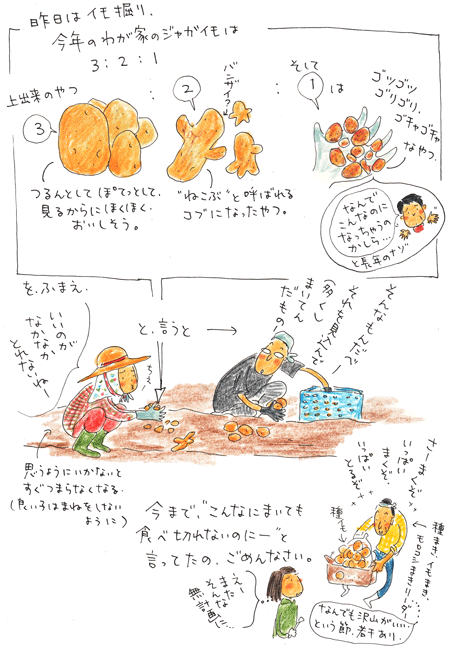 昨日はイモ掘り.
今年のわが家のジャガイモは
3:2:1
上出来のやつ
3
つるんとして ぽてっとして、
見るからにほくほく.
おいしそう。
:
2
バンザイ?
"ねこぶ"と呼ばれる
コブになったやつ。
:
そして
1は
ゴツゴツ
ゴリゴリ、
ゴキャゴキャ
なやつ.
なんで
こんなのに
なっちゃうの
かしら…
と長年のナゾ
を、ふまえ.
いいのが
なかなか
とれないねー
ちぇ
と、言うと →
そんなもんだべ
それを見込んで
(多くし
まいてん
だもの
思うようにいかないと
すぐつまらなくなる.
(良い子はまねをしない
ように)
今まで、"こんなにまいても
食べ切れないのにー"と
言ってたの、ごめんなさい。
まえー
そんな
無計画に…
さーまくぞ
いっぱい
まくぞ、
いっぱい
とるぞ
種イモ
種まき、イモまき、
モロコシまきリーダー
なんでも沢山がいい
という節、若干あり.